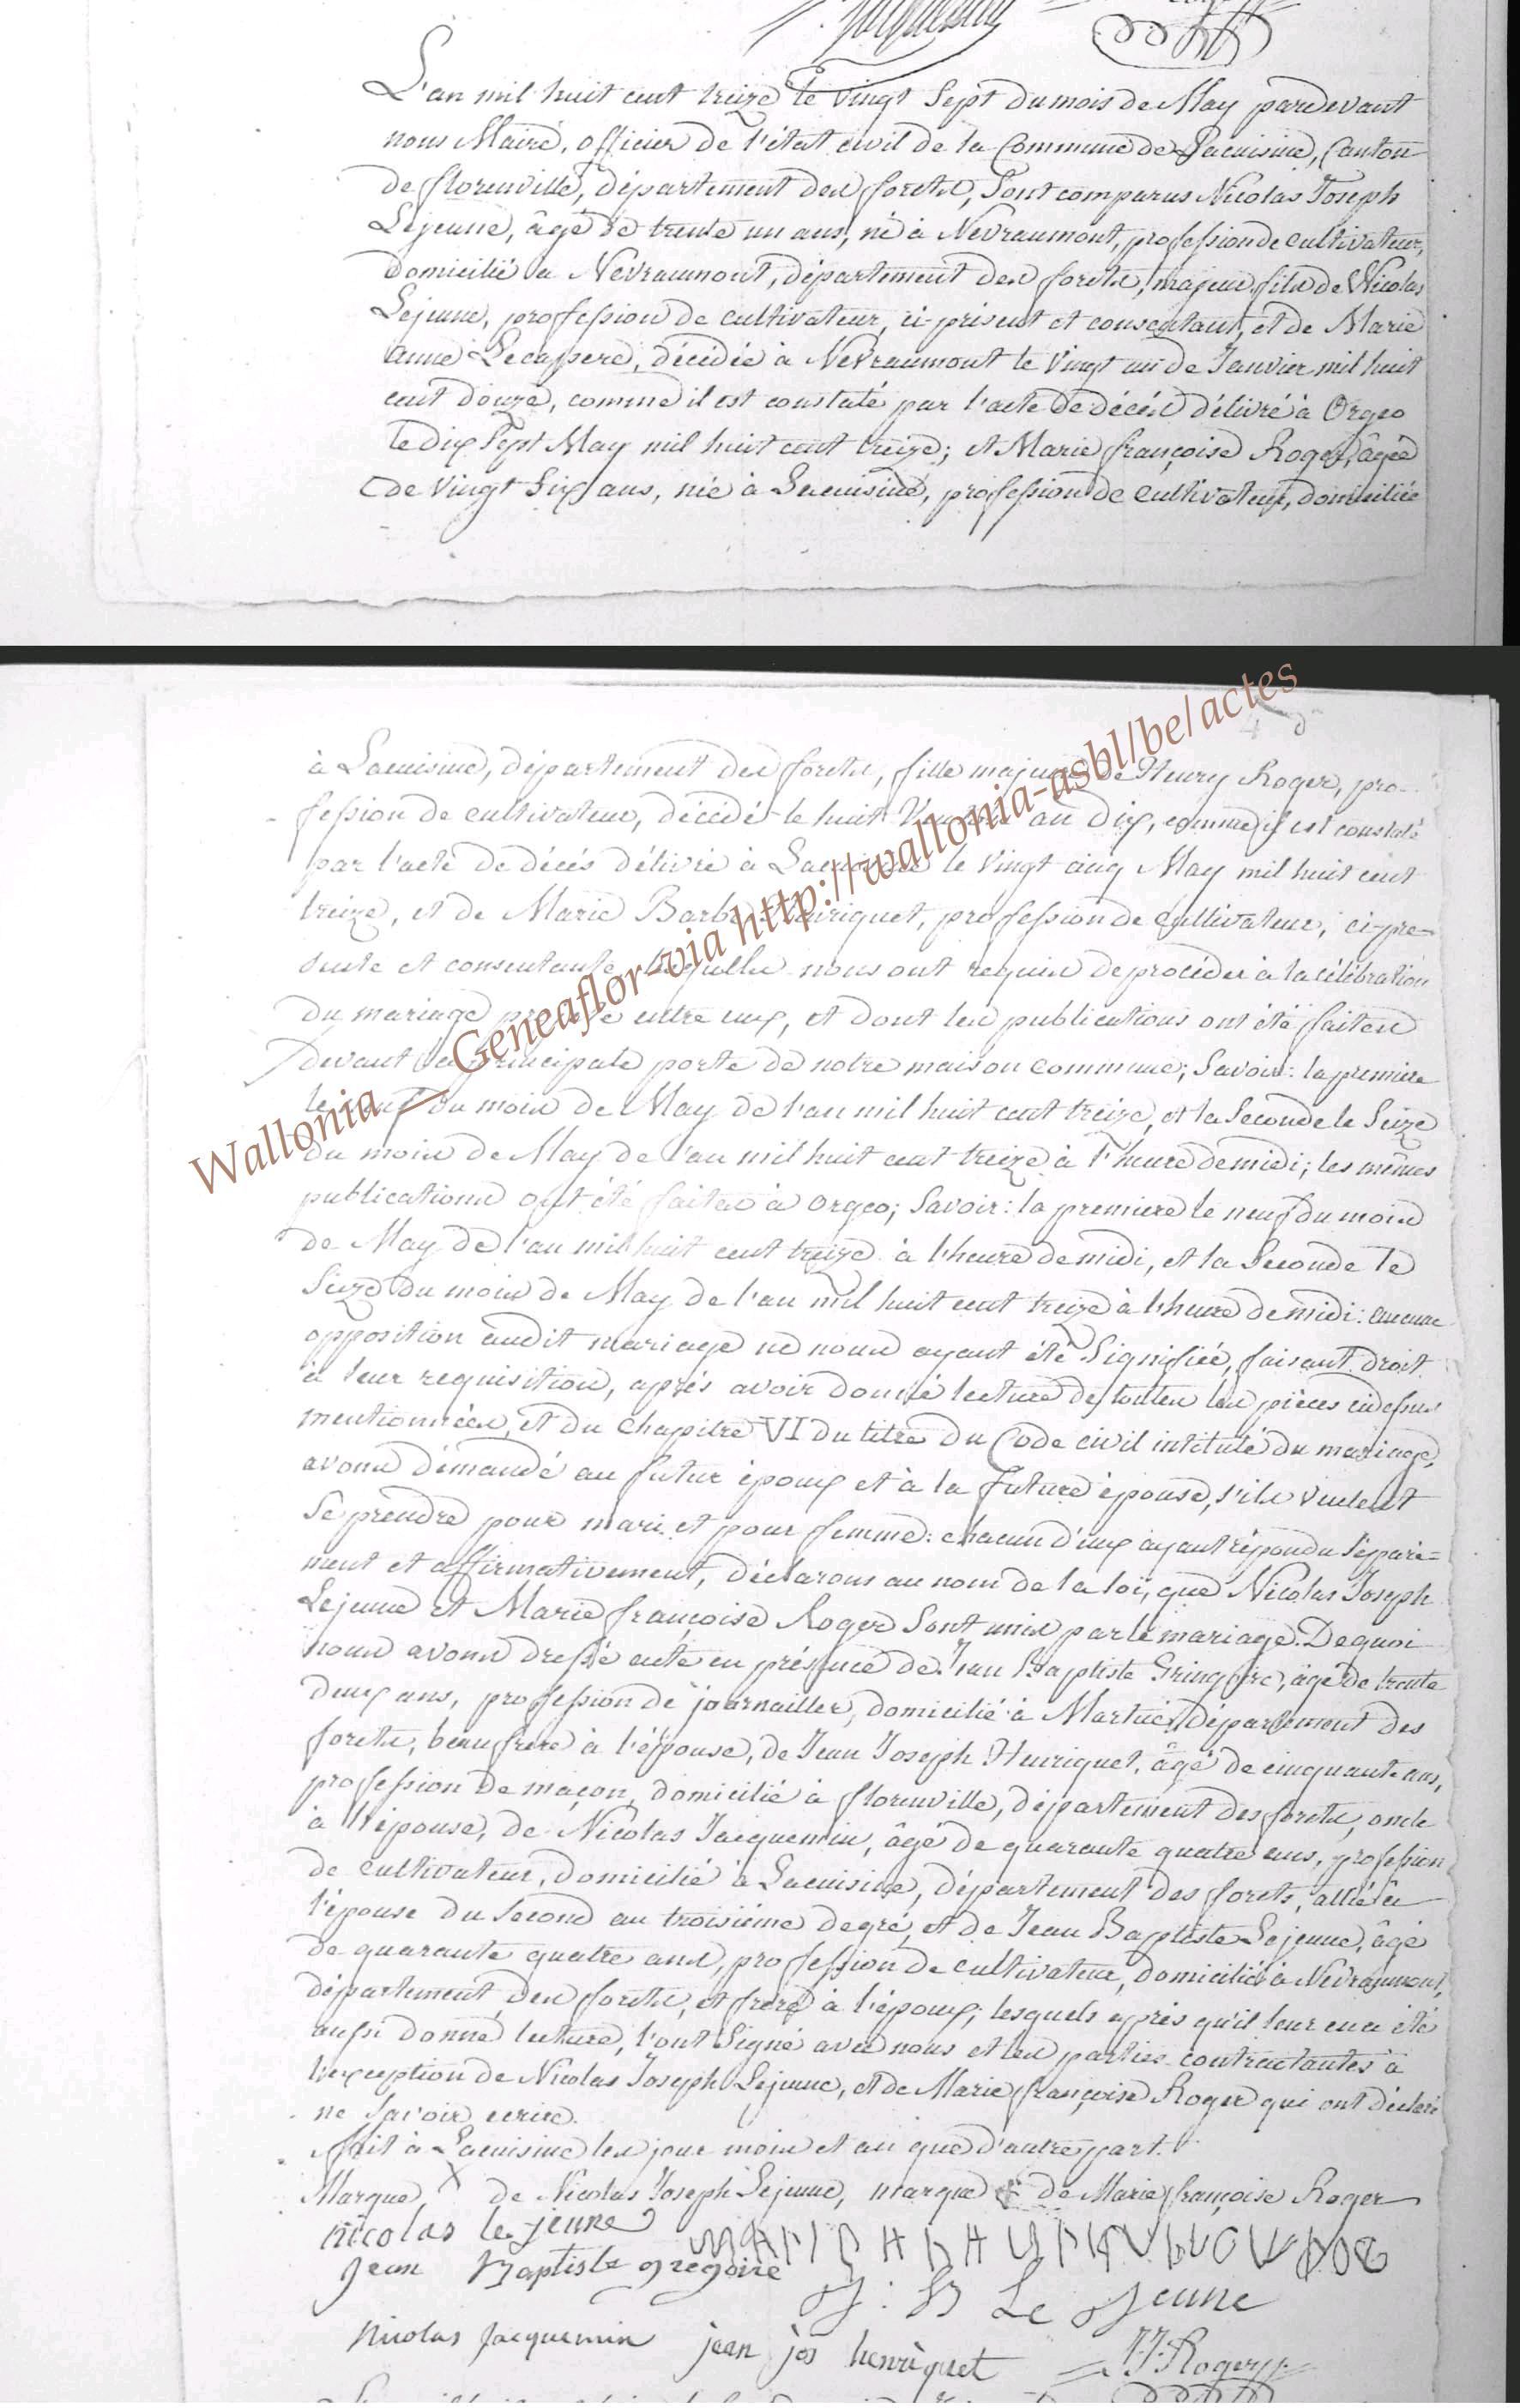 L'an mil huit cent treize le vingt Sept du mois de May pardevant
nous Maire, officier de l'état civil de la Commune de Lacuisine, Canton
de florenville, département des forets, Sont comparus Nicolas Joseph
Lejeune, âgé de trente un ans, né à Nevraumont, profession de cultivateur,
domicilié à Nevraumont, département des forets, majeur, fils de Nicolas
Lejeune, profession de cultivateur, ci-présent et consentant, et de Marie
anne décédée à Nevraumont le vingt un de Janvier mil huit
cent douze, comme il est constaté par l'acte de décés délivré à Orgeo
le dix Sept May mil huit cent treize; et Marie françoise Roger, âgée
de vingt Six ans, née à Lacuisine, profession de cultivateur, domiciliée
à Lacuisine, département des forets, fille majeure de Henry Roger, pro-
fession de cultivateur, décédé le huit an dix, comme il est constaté
par l'acte de décés délivré à Lacuisine le vingt cinq May mil huit cent
treize, et de Marie Barbe Henriquet, profession de cultivateur, ci-pré-
sente et consentante, lesquels nous ont requis de procéder à la célébration
du mariage projeté entre eux, et dont les publications ont été faites
devant la principale porte de notre maison commune; Savoir: la premiere
le neuf du mois de May de l'an mil huit cent treize, et la Seconde le Seize
du mois de May de l'an mil huit cent treize à l'heure de midi; les mêmes
publications ont été faites à Orgeo; Savoir: la premiere le neuf du mois
de May de l'an mil huit cent treize à l'heure de midi, et la Seconde le
Seize du mois de May de l'an mil huit cent treize à l'heure de midi: aucune
opposition audit mariage ne nous ayant été Signifiée, faisant droit
à leur requisition, aprés avoir donné lecture de toutes les pièces cidessus
mentionnées, et du Chapitre VI du titre du Code civil intitulé du mariage,
avons démandé au futur époux et à la future épouse, s'ils veulent
Se prendre pour mari et pour femme: chacun d'eux ayant répondu Séparé=
ment et affirmativement, déclarons au nom de la loi, que Nicolas Joseph
Lejeune et Marie françoise Roger Sont unis par le mariage. De quoi
nous avons dressé acte en présence de Jean Baptiste Gringoire, âgé de trente
deux ans, profession de journailler, domicilié à Martué, département des
forets, beaufrere à l'épouse, de Jean Joseph Henriquet, âgé de cinquante ans,
profession de maçon, domicilié à florenville, département des forets, oncle
à l'épouse, de Nicolas Jacquemin, âgé de quarante quatre ans, profession
de cultivateur, domicilié à Lacuisine, département des forets, allié à
l'épouse du Second au troisiéme degré, et de Jean Baptiste Lejeune, âgé
de quarante quatre ans, profession de cultivateur, domicilié à Nevraumont,
département des forets, et frere à l'époux; lesquels aprés qu'il leur en a été
aussi donné lecture, l'ont Signé avec nous et les parties contractantes à
l'exception de Nicolas Joseph Lejeune, et de Marie françoise Roger qui ont déclaré
ne Savoir ecrire.
fait à Lacuisine les jour mois et an que d'autre part.
Marque X de Nicolas Joseph Lejeune, marque de Marie françoise Roger
nicolas le jeune
jean Baptiste gregoire
J: B Le Jeune
Nicolas Jacquemin jean jos henriquet J.J. Roger
Wallonia — Geneaflor via http://wallonia-asbl/be/actes